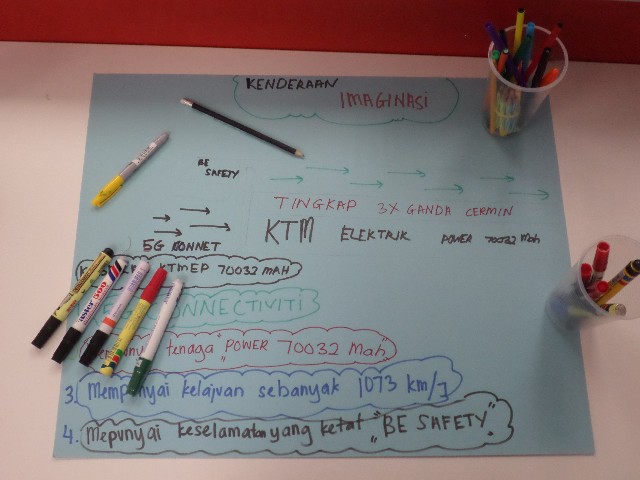 KENDERAAN
IMAGINASI
BE
SAFETY
TINGKAP 3X GANDA CERMIN
5G BONNET
KTM ELEKTRIK POWER 70032 Mah
KTMEP 70032 MAH
CONNECTIVITI
tenaga "POWER 70032 Mah"
3. Mempunyai kelajuan sebanyak 1073 km/j
4. Mepunyai keselamatan yang ketat "BE SAFETY"